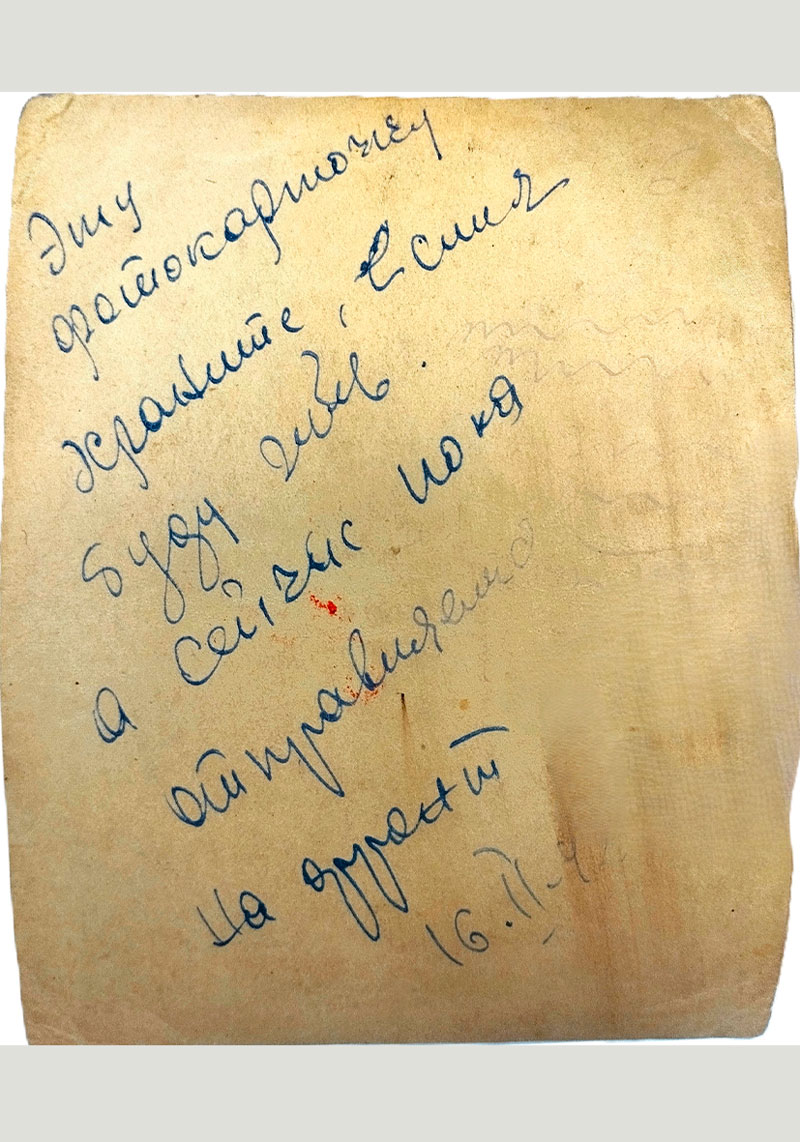 Эту
фотокарточку
храните, если я
буду жив.
а сейчас пока
отправляемся
на фронт
16.II.4